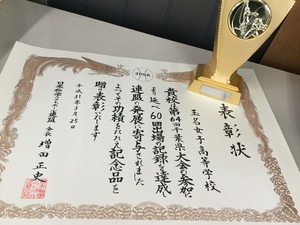 表彰状
玉名女子高等学校
貴校は第64回千葉県大会の参加に
より延べ60回出場の記録を達成し
連盟の発展に寄与されました
よってその功績をたたえ記念品を
贈り表彰いたします
平成31年3月25日
会長 増田正史